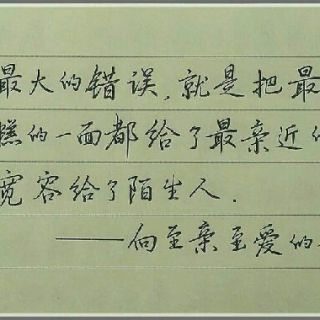 最大的错误，就是把最
糕的一面都给了最亲近的
宽容给了陌生人.
——向至亲至爱的